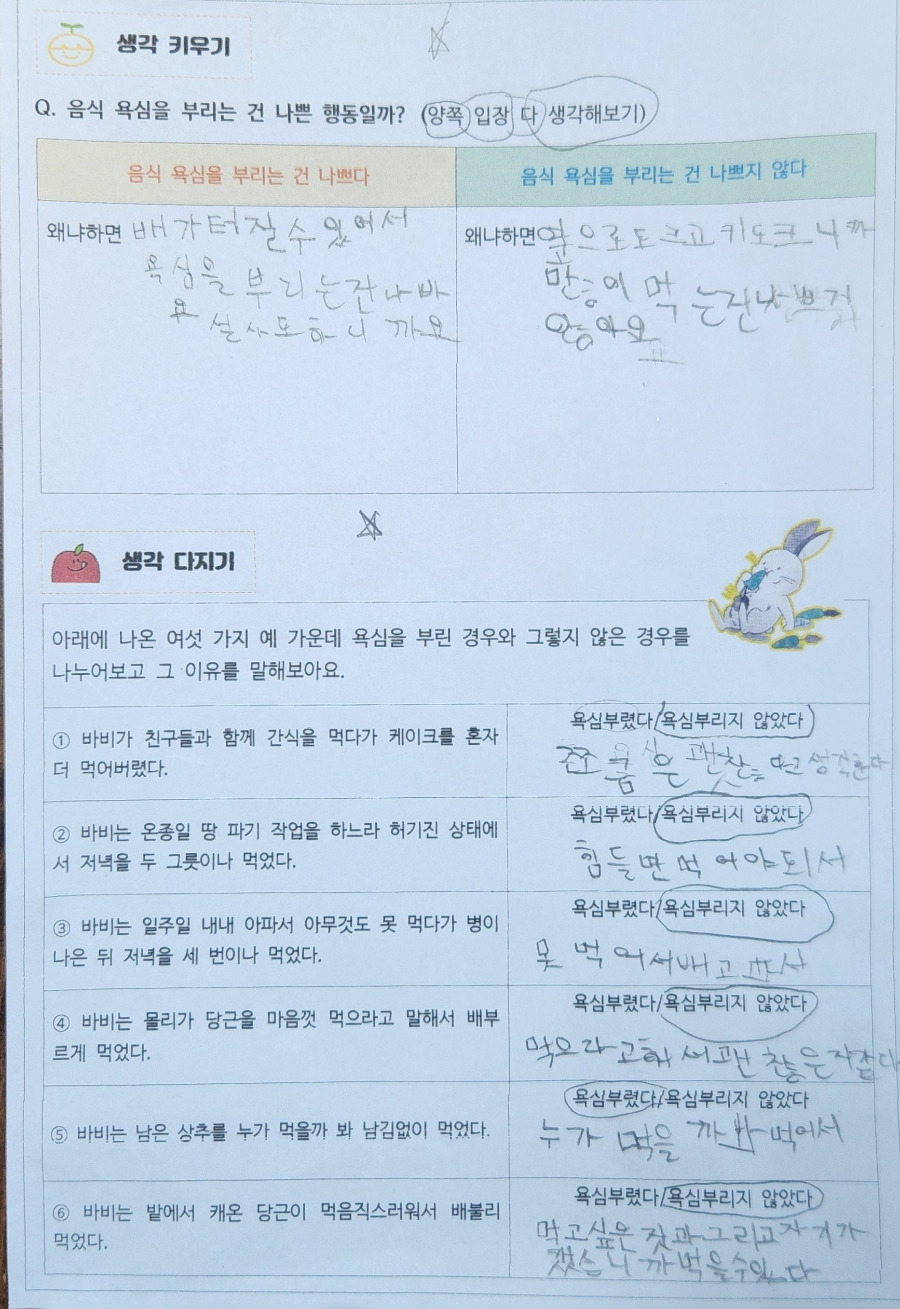 생각 키우기
Q. 음식 욕심을 부리는 건 나쁜 행동일까? (양쪽 입장 다 생각해보기)
음식 욕심을 부리는 건 나쁘다
음식 욕심을 부리는 건 나쁘지 않다
왜냐하면 배가터질수있어서
욕심을 부리는잔나바
요
설사도하니 까요
왜냐하면 앞으로도크고키도크니까
많이 먹는잔나쁘지
않아요
생각 다지기
아래에 나온 여섯 가지 예 가운데 욕심을 부린 경우와 그렇지 않은 경우를
나누어보고 그 이유를 말해보아요.
① 바비가 친구들과 함께 간식을 먹다가 케이크를 혼자
더 먹어버렸다.
욕심부렸다/욕심부리지 않았다
② 바비는 온종일 땅 파기 작업을 하느라 허기진 상태에
서 저녁을 두 그릇이나 먹었다.
욕심부렸다/욕심부리지 않았다
힘들면먹어야되서
③ 바비는 일주일 내내 아파서 아무것도 못 먹다가 병이
나은 뒤 저녁을 세 번이나 먹었다.
욕심부렸다/욕심부리지 않았다
못 먹어서배고파서
④ 바비는 몰리가 당근을 마음껏 먹으라고 말해서 배부
르게 먹었다.
욕심부렸다/욕심부리지 않았다
먹으라고해서괜찮은거같다
⑤ 바비는 남은 상추를 누가 먹을까 봐 남김없이 먹었다.
욕심부렸다/욕심부리지 않았다
누가 먹을까봐먹어서
⑥ 바비는 밭에서 캐온 당근이 먹음직스러워서 배불리
먹었다.
욕심부렸다/욕심부리지 않았다
먹고싶은 것과그리고자기가
캤으니까먹을수있다